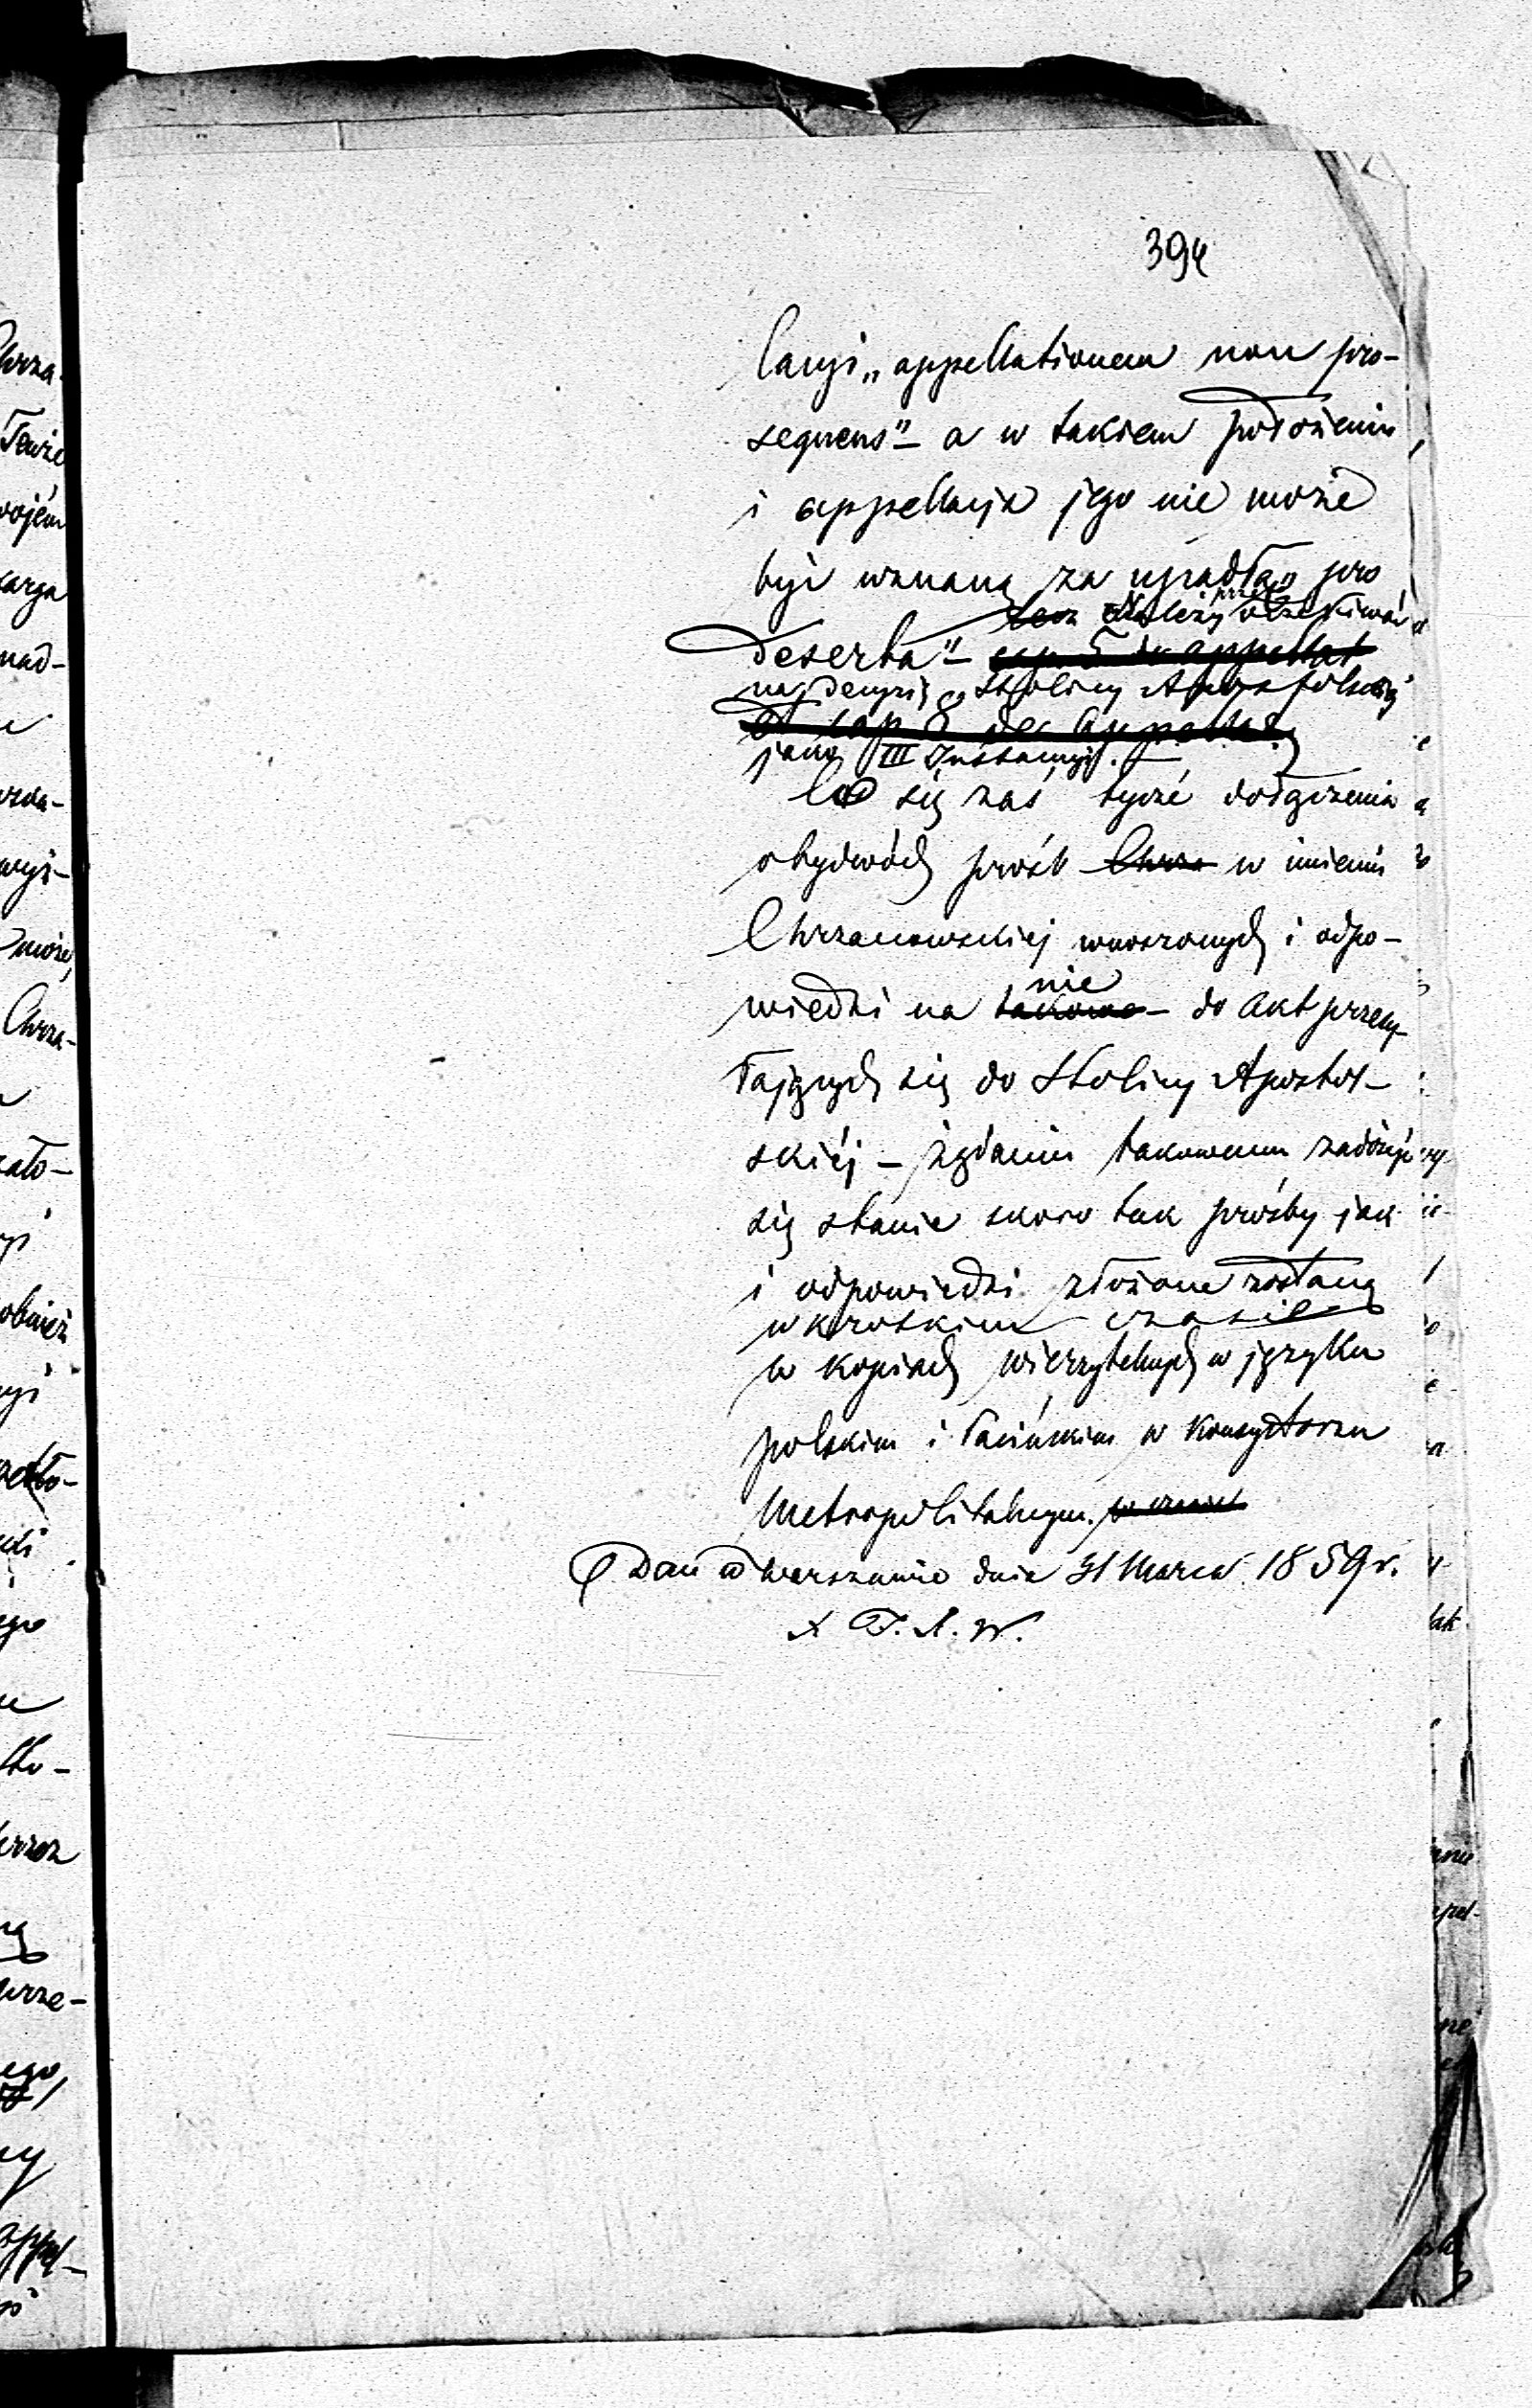 394
lacyi „appellationem non pro-
sequens" – a w takiem położeniu
i appellacja jego nie może
być uznaną za upadłą „pro
lecz należy oczekiwać
deserta" – cap. 5 de appellat
na decyzię Stolicy Apostolskiéj
et cap 8 de appellat.
jako III Instancyi. –
Co się zaś tycze dołączenia
obydwóch próśb Chrza w imieniu
Chrzanowskiej wnoszonych i odpo-
nie
wiedzi na takowe – do akt przesy-
łających się do Stolicy Apostol-
skiéj – żądaniu takowemu zadosyć
się stanie skoro tak prośby jak
i odpowiedzi złożone zostaną
w krótkim czasie
w kopiach wierzytelnych w języku
polskim i łacińskim w Konsystorzu
Metropolitalnym.
Dan w Warszawie dnia 31 Marca 1859 r.